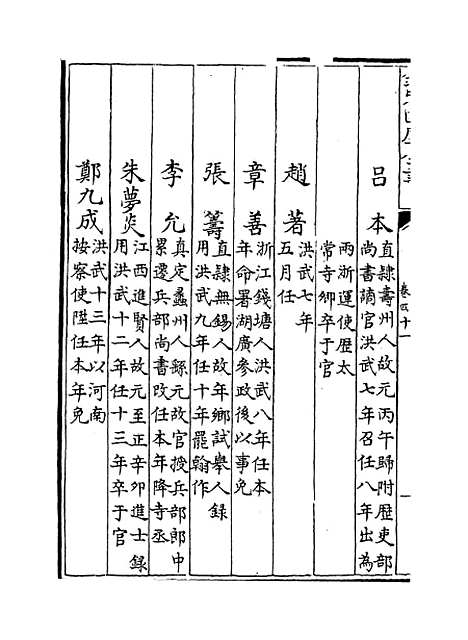 卷四十一
呂本 直隷壽州人故元丙午歸附歴吏部
尚書謫官洪武七年召任八年出為
兩浙運使歴太
常寺卿卒于官
趙著 洪武七年
五月任
章善 浙江錢塘人洪武八年任本
年命署湖廣參政後以事免
張籌 直隷無錫人故年鄉試舉人録
用洪武九年任十年罷翰作
李允 真定蠡州人繇元故官授兵部郎中
累遷兵部尚書改任本年降寺丞
朱夢炎 江西進賢人故元至正辛卯進士録
用洪武十二年任十三年卒于官
鄭九成 洪武十三年以河南
按察使陞任本年免